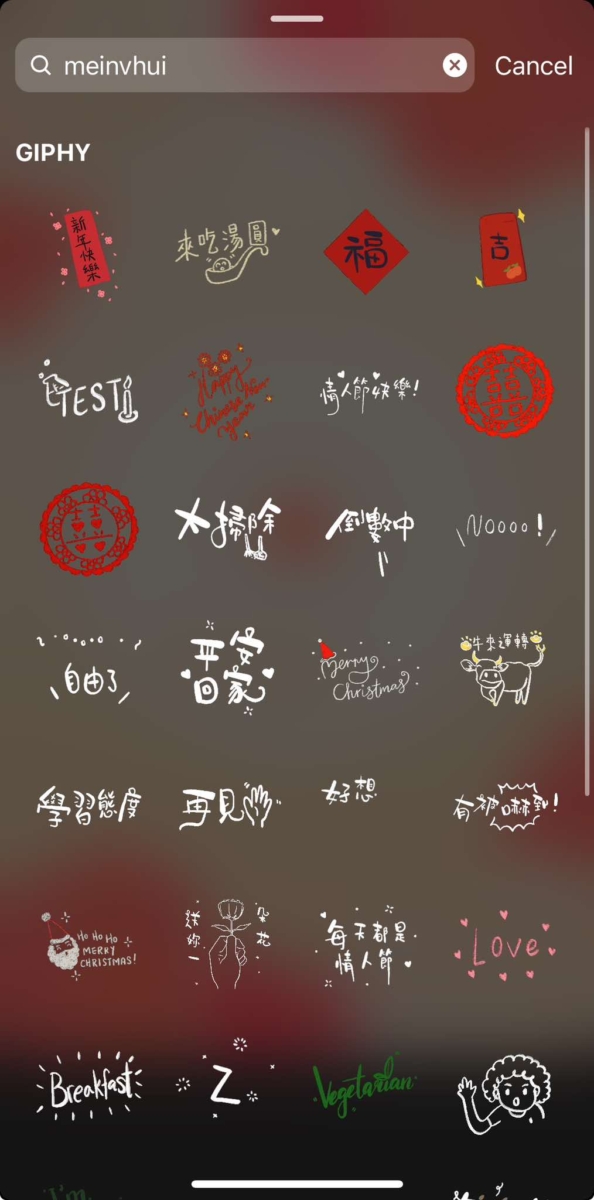 meinvhui
Cancel
GIPHY
新年快樂
來吃湯圓
福
吉
TEST
Happy
Chinese New
Year
情人節快樂!
囍
囍
大掃除
倒數中
Noooo!
自由了
平安
回家
Merry
Christmas
牛來運轉
學習態度
再見
好想
有被嚇到!
Ho Ho Ho
MERRY
CHRISTMAS!
送妳一
朵花
每天都是
情人節
Love
Breakfast
Z
Vegetarian
I'm